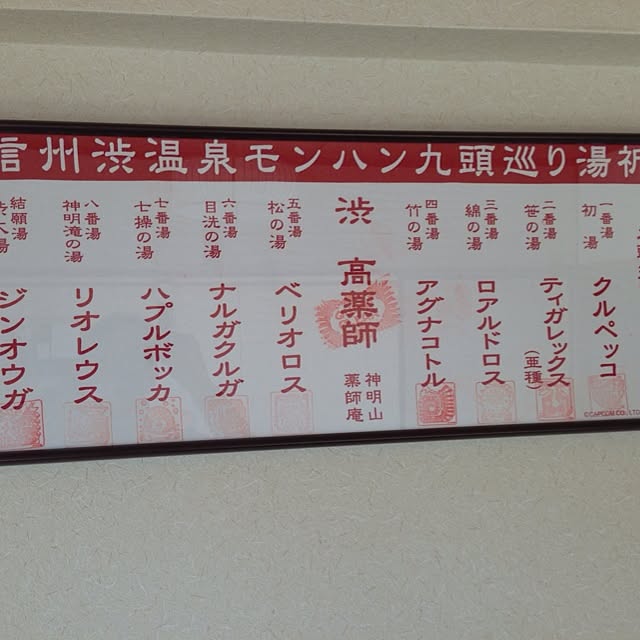 信州渋温泉モンハン九頭巡り湯祈
一番湯
初湯
クルペッコ
二番湯
笹の湯
ティガレックス
(亜種)
三番湯
綿の湯
ロアルドロス
四番湯
竹の湯
アグナコトル
渋 高薬師
神明山
薬師庵
五番湯
松の湯
ベリオロス
六番湯
目洗の湯
ナルガクルガ
七番湯
七操の湯
ハプルボッカ
八番湯
神明滝の湯
リオレウス
結願湯
渋大湯
ジンオウガ
©CAPCOM CO., LTD